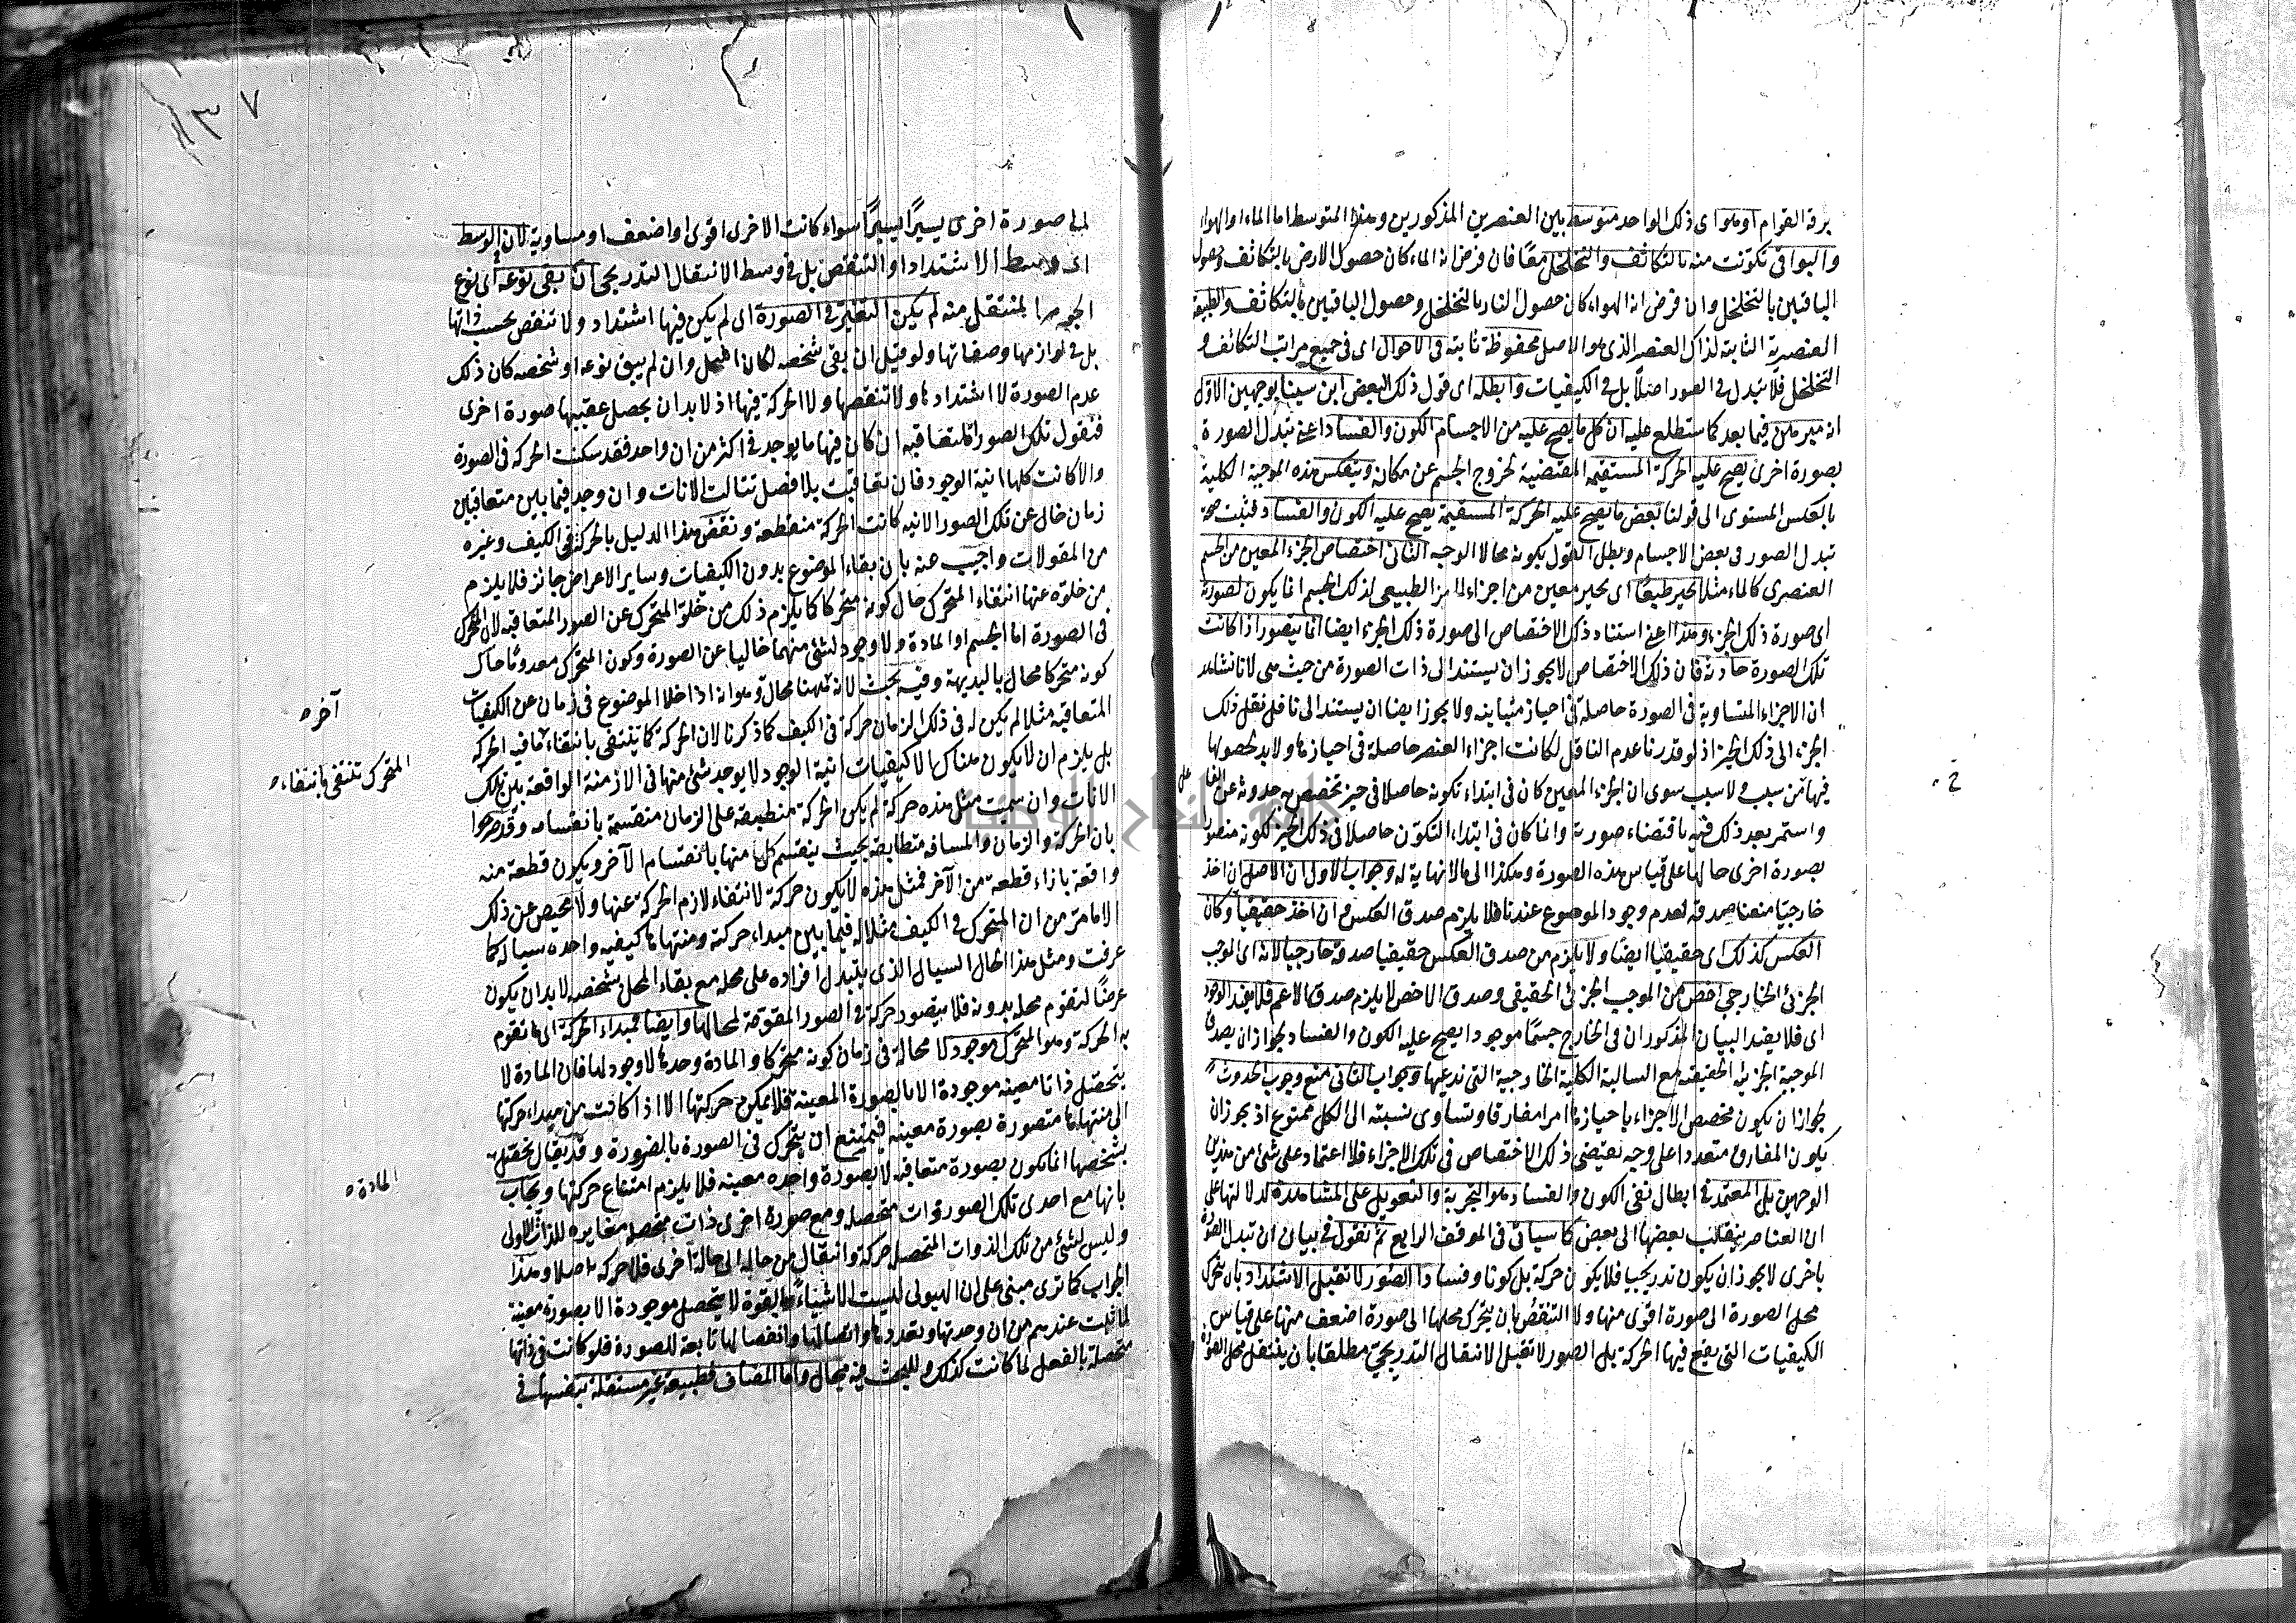 برقة القوام او هو اى ذلك الواحد متوسط بين العنصرين المذكورين وهذا المتوسط اما الماء او الهواء
والبواقى تكونت منه بالتكاثف والتخلخل معًا فان فرض انه الماء كان حصول الارض بالتكاثف وحصول
الباقيين بالتخلخل وان فرض انه الهواء كان حصول النار بالتخلخل وحصول الباقيين بالتكاثف والطبيعة
العنصرية الثابتة لذاك العنصر الذى هو الاصل محفوظة ثابتة فى الاحوال اى فى جميع مراتب التكاثف و
التخلخل فلا تبدل فى الصور اصلًا بل فى الكيفيات وابطله اى قول ذلك البعض ابن سينا بوجهين الاول
انه تبرهن فيما بعد كما ستطلع عليه ان كل ما يصح عليه من الاجسام الكون والفساد اعنى تبدل الصورة
بصورة اخرى يصح عليه الحركة المستقيمة المقتضية لخروج الجسم عن مكانه وينعكس هذه الموجبة الكلية
بالعكس المستوى الى قولنا بعض ما يصح عليه الحركة المستقيمة يصح عليه الكون والفساد فثبت صحة
تبدل الصور فى بعض الاجسام وبطل القول بكونه محالا الوجه الثانى اختصاص الجزء المعين من الجسم
العنصرى كالماء مثلا بحيز طبيعًا اى بحيز معين من اجزاء الحيز الطبيعى لذلك الجسم انما يكون لصورته
اى صورة ذلك الجزء وهذا اعنى استناد ذلك الاختصاص الى صورة ذلك الجزء ايضا انما يتصور اذا كانت
تلك الصورة حادثة فان ذلك الاختصاص لا يجوز ان يستند الى ذات الصورة من حيث هى لانا نشاهد
ان الاجزاء المتساوية فى الصورة حاصلة فى احياز متباينه ولا يجوز ايضا ان يستند الى ناقل نقل ذلك
الجزء الى ذلك الحيز اذ لو قدرنا عدم الناقل لكانت اجزاء العنصر حاصلة فى احيازها ولا بد لحصولها
فيها من سبب ولا سبب سوى ان الجزء المعين كان فى ابتداء تكونه حاصلا فى حيز تخصص به حدوثه عن الفاعل
واستمر بعد ذلك فيه باقتضاء صورته وانما كان فى ابتداء التكون حاصلا فى ذلك الحيز لكونه متصورا
بصورة اخرى حالها على قياس هذه الصورة وهكذا الى مالا نهاية له وجواب الاول ان الاصل ان اخذ
خارجيًا منعنا صدقه لعدم وجود الموضوع عندنا فلا يلزم صدق العكس وان اخذ حقيقيًا وكان
العكس كذلك اى حقيقيا ايضا ولا يلزم من صدق العكس حقيقيا صدقه خارجيا لانه اى الموجب
الجزئى الخارجى اخص من الموجب الجزئى الحقيقى وصدق الاخص لا يلزم صدق الاعم فلا يفيد الوجود
اى فلا يفيد البيان المذكور ان فى الخارج جسمًا موجودا يصح عليه الكون والفساد لجواز ان يصدق
الموجبة الجزئية الحقيقية مع السالبة الكلية الخارجية التى ندعيها وجواب الثانى منع وجوب الحدوث
لجواز ان يكون مخصص الاجزاء باحيازها امرا مفارقا وتساوى نسبته الى الكل ممنوع اذ يجوز ان
يكون المفارق متعددا على وجه يقتضى ذلك الاختصاص فى تلك الاجزاء فلا اعتماد على شئ من هذين
الوجهين بل المعتمد فى ابطال نفى الكون والفساد هو التجربة والتعويل على المشاهدة لدلالتها على
ان العناصر ينقلب بعضها الى بعض كما سيأتى فى الموقف الرابع ثم نقول فى بيان ان تبدل الصورة
باخرى لا يجوز ان يكون تدريجيا فلا يكون حركة بل كونا وفسادا الصور لا تقبل الاشتداد بان يتحرك
محل الصورة الى صورة اقوى منها ولا التنقص بان يتحرك محلها الى صورة اضعف منها على قياس
الكيفيات التى يقع فيها الحركة بل الصور لا تقبل الانتقال التدريجى مطلقا بان ينتقل محل الصورة
١٣٧
الى صورة اخرى يسيرًا يسيرًا سواء كانت الاخرى اقوى او اضعف او مساوية لان الوسط
اى وسط الاشتداد او التنقص بل فى وسط الانتقال التدريجى ان بقى نوعه اى نوع
الجوهر المنتقل منه لم يكن التغير فى الصورة اى لم يكن فيها اشتداد ولا تنقص بحسب ذاتها
بل فى لوازمها وصفاتها ولو قيل ان بقى شخصه لكان اشمل وان لم يبق نوعه او شخصه كان ذلك
عدم الصورة لا اشتدادها ولا تنقصها ولا الحركة فيها اذ لا بد ان يحصل عقيبها صورة اخرى
فنقول تلك الصور المتعاقبه ان كان فيها ما يوجد فى اكثر من ان واحد فقد سكنت الحركة فى الصورة
والا كانت كلها انية الوجود فان تعاقبت بلا فصل تتالت الانات وان وجد فيما بين متعاقبين
زمان خال عن تلك الصور الانيه كانت الحركة منقطعة ونقض هذا الدليل بالحركة فى الكيف وغيره
من المقولات واجيب عنه بان بقاء الموضوع بدون الكيفيات وساير الاعراض جائز فلا يلزم
من خلوه عنها انتفاء المتحرك حال كونه متحركا كما يلزم ذلك من خلو المتحرك عن الصور المتعاقبه لان المتحرك
فى الصورة اما الجسم او المادة ولا وجود لشئ منهما خاليا عن الصورة وكون المتحرك معدوما حال
كونه متحركا محال بالبديهة وفيه بحث لانه ههنا محال وهو انه اذا خلا الموضوع فى زمان عن الكيفيات
المتعاقبه مثلا لم يكن له فى ذلك الزمان حركة فى الكيف كما ذكرنا لان الحركة كما ينتفى بانتفاء ما فيه الحركة
بل يلزم ان لا يكون هناك الا كيفيات انية الوجود لا يوجد شئ منها فى الازمنة الواقعة بين تلك
الانات وان سميت مثل هذه حركة لم يكن الحركة منطبعة على الزمان منقسمة بانقسامه وقد صرحوا
بان الحركة والزمان والمسافه متطابقه بحيث ينقسم كل منها بانقسام الآخر ويكون قطعة منه
واقعة بازاء قطعة من الآخر فمثل هذه لا يكون حركة لانتفاء لازم الحركة عنها ولا محيص عن ذلك
الا ما مر من ان المتحرك فى الكيف مثلا له فيما بين مبداء حركته ومنتهاها كيفيه واحده سياله كما
عرفت ومثل هذا الحال السيال الذى يتبدل افراده على محله مع بقاء المحل بشخصه لا بد ان يكون
عرضًا لتقوم محله بدونه فلا يتصور حركة فى الصور المقومة لمحالها وايضا فمبداء الحركة اى ما تقوم
به الحركة وهو المتحرك موجود لا محالة فى زمان كونه متحركا والمادة وحدها لا وجود لها فان المادة لا
يتحصل ذاتا معينه موجودة الا بالصورة المعينه فلا يمكن حركتها الا اذا كانت من مبداء حركتها
الى منتهاها متصورة بصورة معينه فيمتنع ان يتحرك فى الصورة بالضرورة وقد يقال تحصل
بشخصها انما يكون بصورة متعاقبه لا بصورة واحده معينه فلا يلزم امتناع حركتها ويجاب
بانها مع احدى تلك الصور ذات متحصله ومع صورة اخرى ذات متحصله مغايره للذات الاولى
وليس لشئ من تلك الذوات المتحصله حركة وانتقال من حاله الى حالة اخرى فلا حركه اصلا وهذا
الجواب كما ترى مبنى على ان الهيولى ليست الا شيئا بالقوة لا يتحصل موجودة الا بصورة معينة
لما ثبت عندهم من ان وحدتها وتعددها واتصالها وانفصالها تابعة للصورة فلو كانت فى ذاتها
متحصلة بالفعل لما كانت كذلك وللبحث فيه مجال واما المضاف فطبيعة غير مستقلة بنفسها فى
آخره
المتحرك تنتفى بانتفاء
المادة